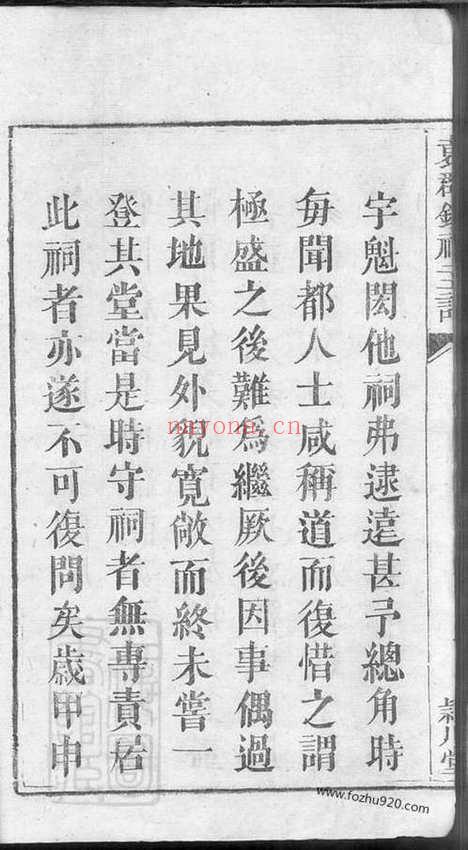 宇魁閎他祠弗逮遠甚予總角時
每聞都人士咸稱道而復惜之謂
極盛之後難為繼厥後因事偶過
其地果見外貌寬敞而終未嘗一
登其堂當是時守祠者無專責居
此祠者亦遂不可復問矣歲甲申
nayona.cn
www.fozhu920.com